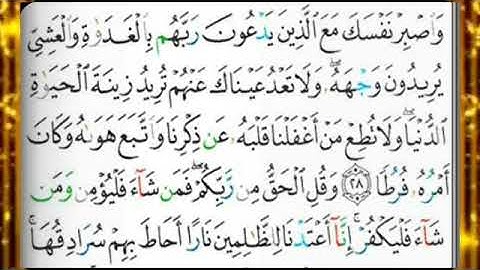 وَٱصْبِرْ نَفْسَكَ مَعَ ٱلَّذِينَ يَدْعُونَ رَبَّهُم بِٱلْغَدَوٰةِ وَٱلْعَشِىِّ
يُرِيدُونَ وَجْهَهُۥ وَلَا تَعْدُ عَيْنَاكَ عَنْهُمْ تُرِيدُ زِينَةَ ٱلْحَيَوٰةِ
ٱلدُّنْيَا ۖ وَلَا تُطِعْ مَنْ أَغْفَلْنَا قَلْبَهُۥ عَن ذِكْرِنَا وَٱتَّبَعَ هَوَىٰهُ وَكَانَ
أَمْرُهُۥ فُرُطًا ٢٨ وَقُلِ ٱلْحَقُّ مِن رَّبِّكُمْ ۖ فَمَن شَآءَ فَلْيُؤْمِن وَمَن
شَآءَ فَلْيَكْفُرْ ۚ إِنَّآ أَعْتَدْنَا لِلظَّٰلِمِينَ نَارًا أَحَاطَ بِهِمْ سُرَادِقُهَا ۚ